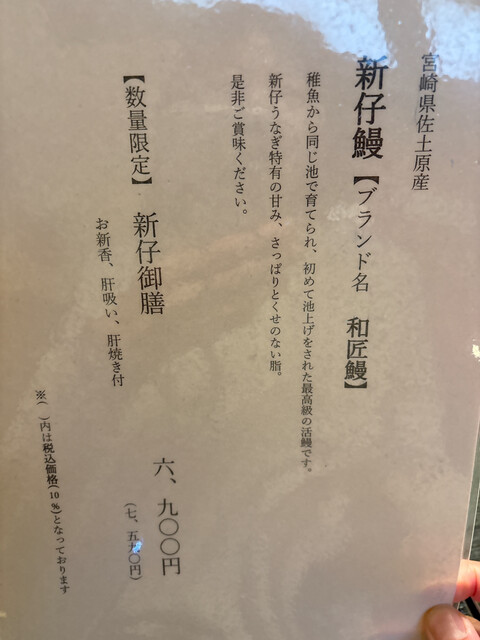 宮崎県佐土原産
新仔鰻【ブランド名　和匠鰻】
稚魚から同じ池で育てられ、初めて池上げをされた最高級の活鰻です。
新仔うなぎ特有の甘み、さっぱりとくせのない脂。
是非ご賞味ください。
【数量限定】　新仔御膳　六、九〇〇円
お新香、肝吸い、肝焼き付　(七、五九〇円)
※(　)内は税込価格(10%)となっております